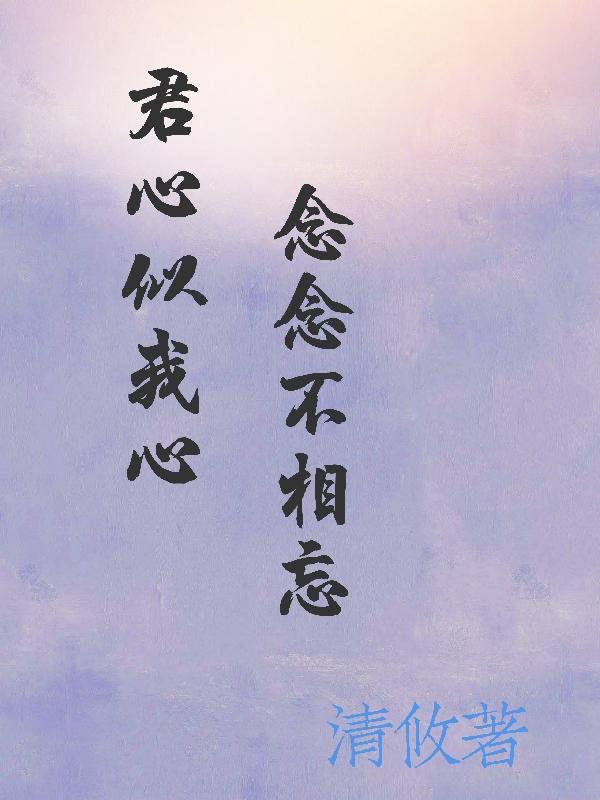 君心似我心
念念不相忘
清攸著